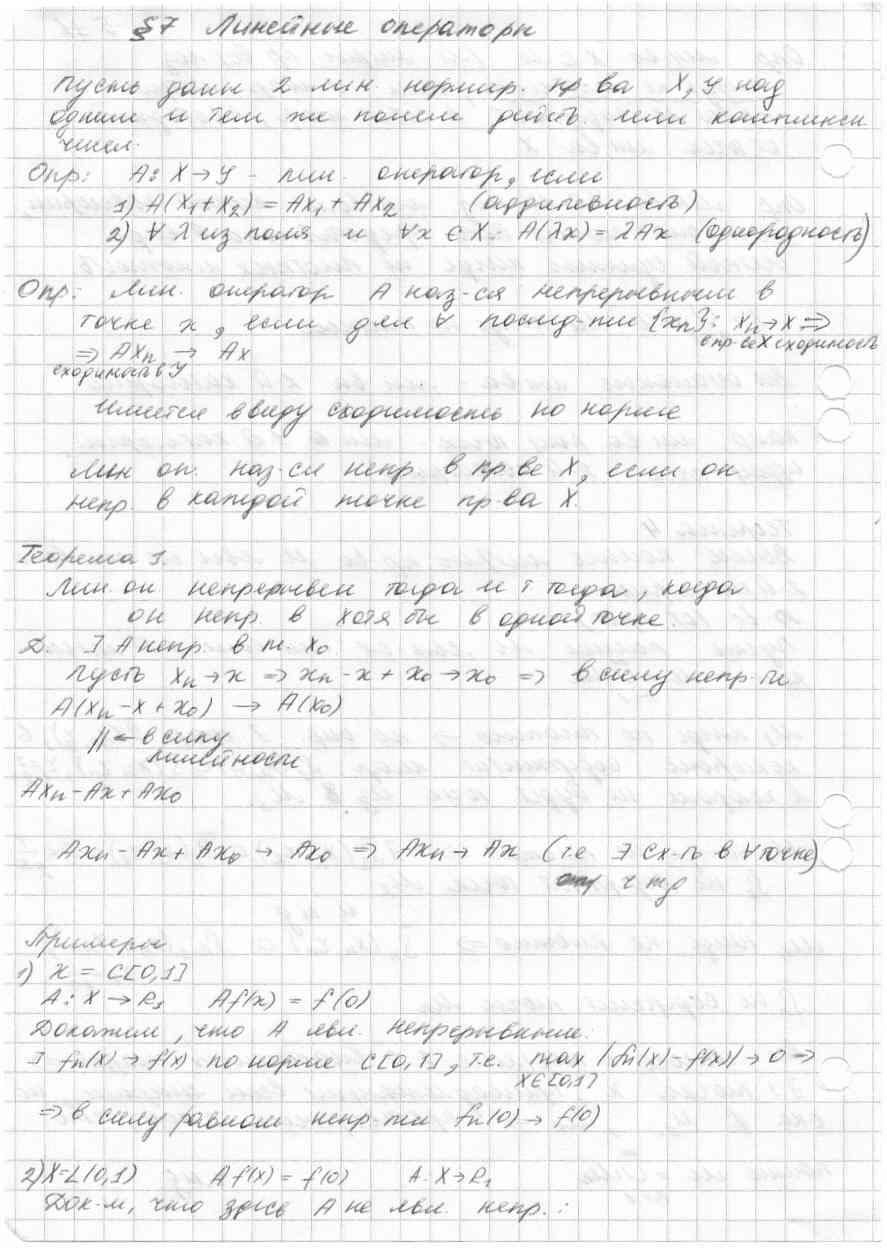 §7 Линейные операторы
Пусть даны 2 лин. нормир. пр-ва X, Y над
одним и тем же полем действ. или комплексн
чисел.
Опр: A: X → Y - лин. оператор, если
1) A(x₁+x₂) = Ax₁ + Ax₂ (аддитивность)
2) ∀ λ из поля и ∀x ∈ X: A(λx) = λAx (однородность)
Опр: Лин. оператор A наз-ся непрерывным в
точке x, если для ∀ послед-ти {xₙ}: xₙ → x ⇒
в пр-ве X сходимость
⇒ Axₙ → Ax
сходимость в Y
Имеется ввиду сходимость по норме
Лин оп. наз-ся непр. в пр-ве X, если он
непр. в каждой точке пр-ва X.
Теорема 1.
Лин. оп. непрерывен тогда и т тогда, когда
он непр. в хотя бы в одной точке.
Д: ∃ A непр. в т. x₀
Пусть xₙ → x ⇒ xₙ - x + x₀ → x₀ ⇒ в силу непр-ти
A(xₙ - x + x₀) → A(x₀)
|| ← в силу
линейности
Axₙ - Ax + Ax₀
Axₙ - Ax + Ax₀ → Ax₀ ⇒ Axₙ → Ax (т.е. ∃ сх-ть в ∀ точке)
ч т д
Примеры
1) X = C[0,1]
A: X → R₁ Af(x) = f(0)
Докажем, что A явл. непрерывным:
∃ fₙ(x) → f(x) по норме C[0,1], т.е. max |fₙ(x) - f(x)| → 0 ⇒
x∈[0,1]
⇒ в силу равном непр-ти fₙ(0) → f(0)
2) X=L(0,1) Af(x) = f(0) A: X → R₁
Док-м, что здесь A не явл. непр.: